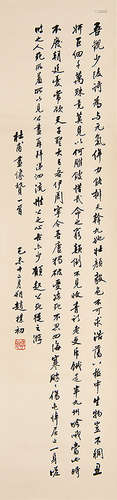 吾觀少陵詩為與元氣侔力能排天斡九地壯顏毅色不可求浩蕩八極中生物豈不稠丑
妍巨細千萬殊竟莫見以何雕鎪惜哉命之窮顛倒不見收青衫老更斥餓走半九州吟哦當此時
不廢朝廷憂常願天子聖大臣各伊周寧令吾廬獨破受凍死不忍四海寒颼颼傷屯悼屈止一身嗟
時之人死所羞所以見公畫再拜涕泗流惟公之心古亦少願起公死從之遊
杜甫畫像贊一首
己未十二月朔趙樸初